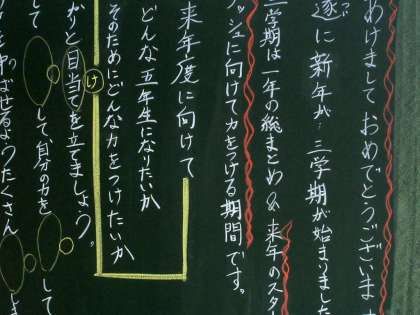 あけましておめでとうございま
遂に新年が…三学期が始まりました
三学期は一年の総まとめ&来年のスター
ッシュに向けて力をつける期間です。
来年度に向けて
どんな五年生になりたいか
そのためにどんな力をつけたいか
け
かりと目当てを立てましょう。
して して、自分の力を して
ばせるようたくさん